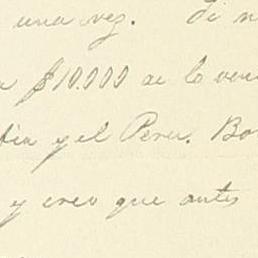 una vez. Si n
$10.000 de lo
y el Peru. Bo
y creo que antes